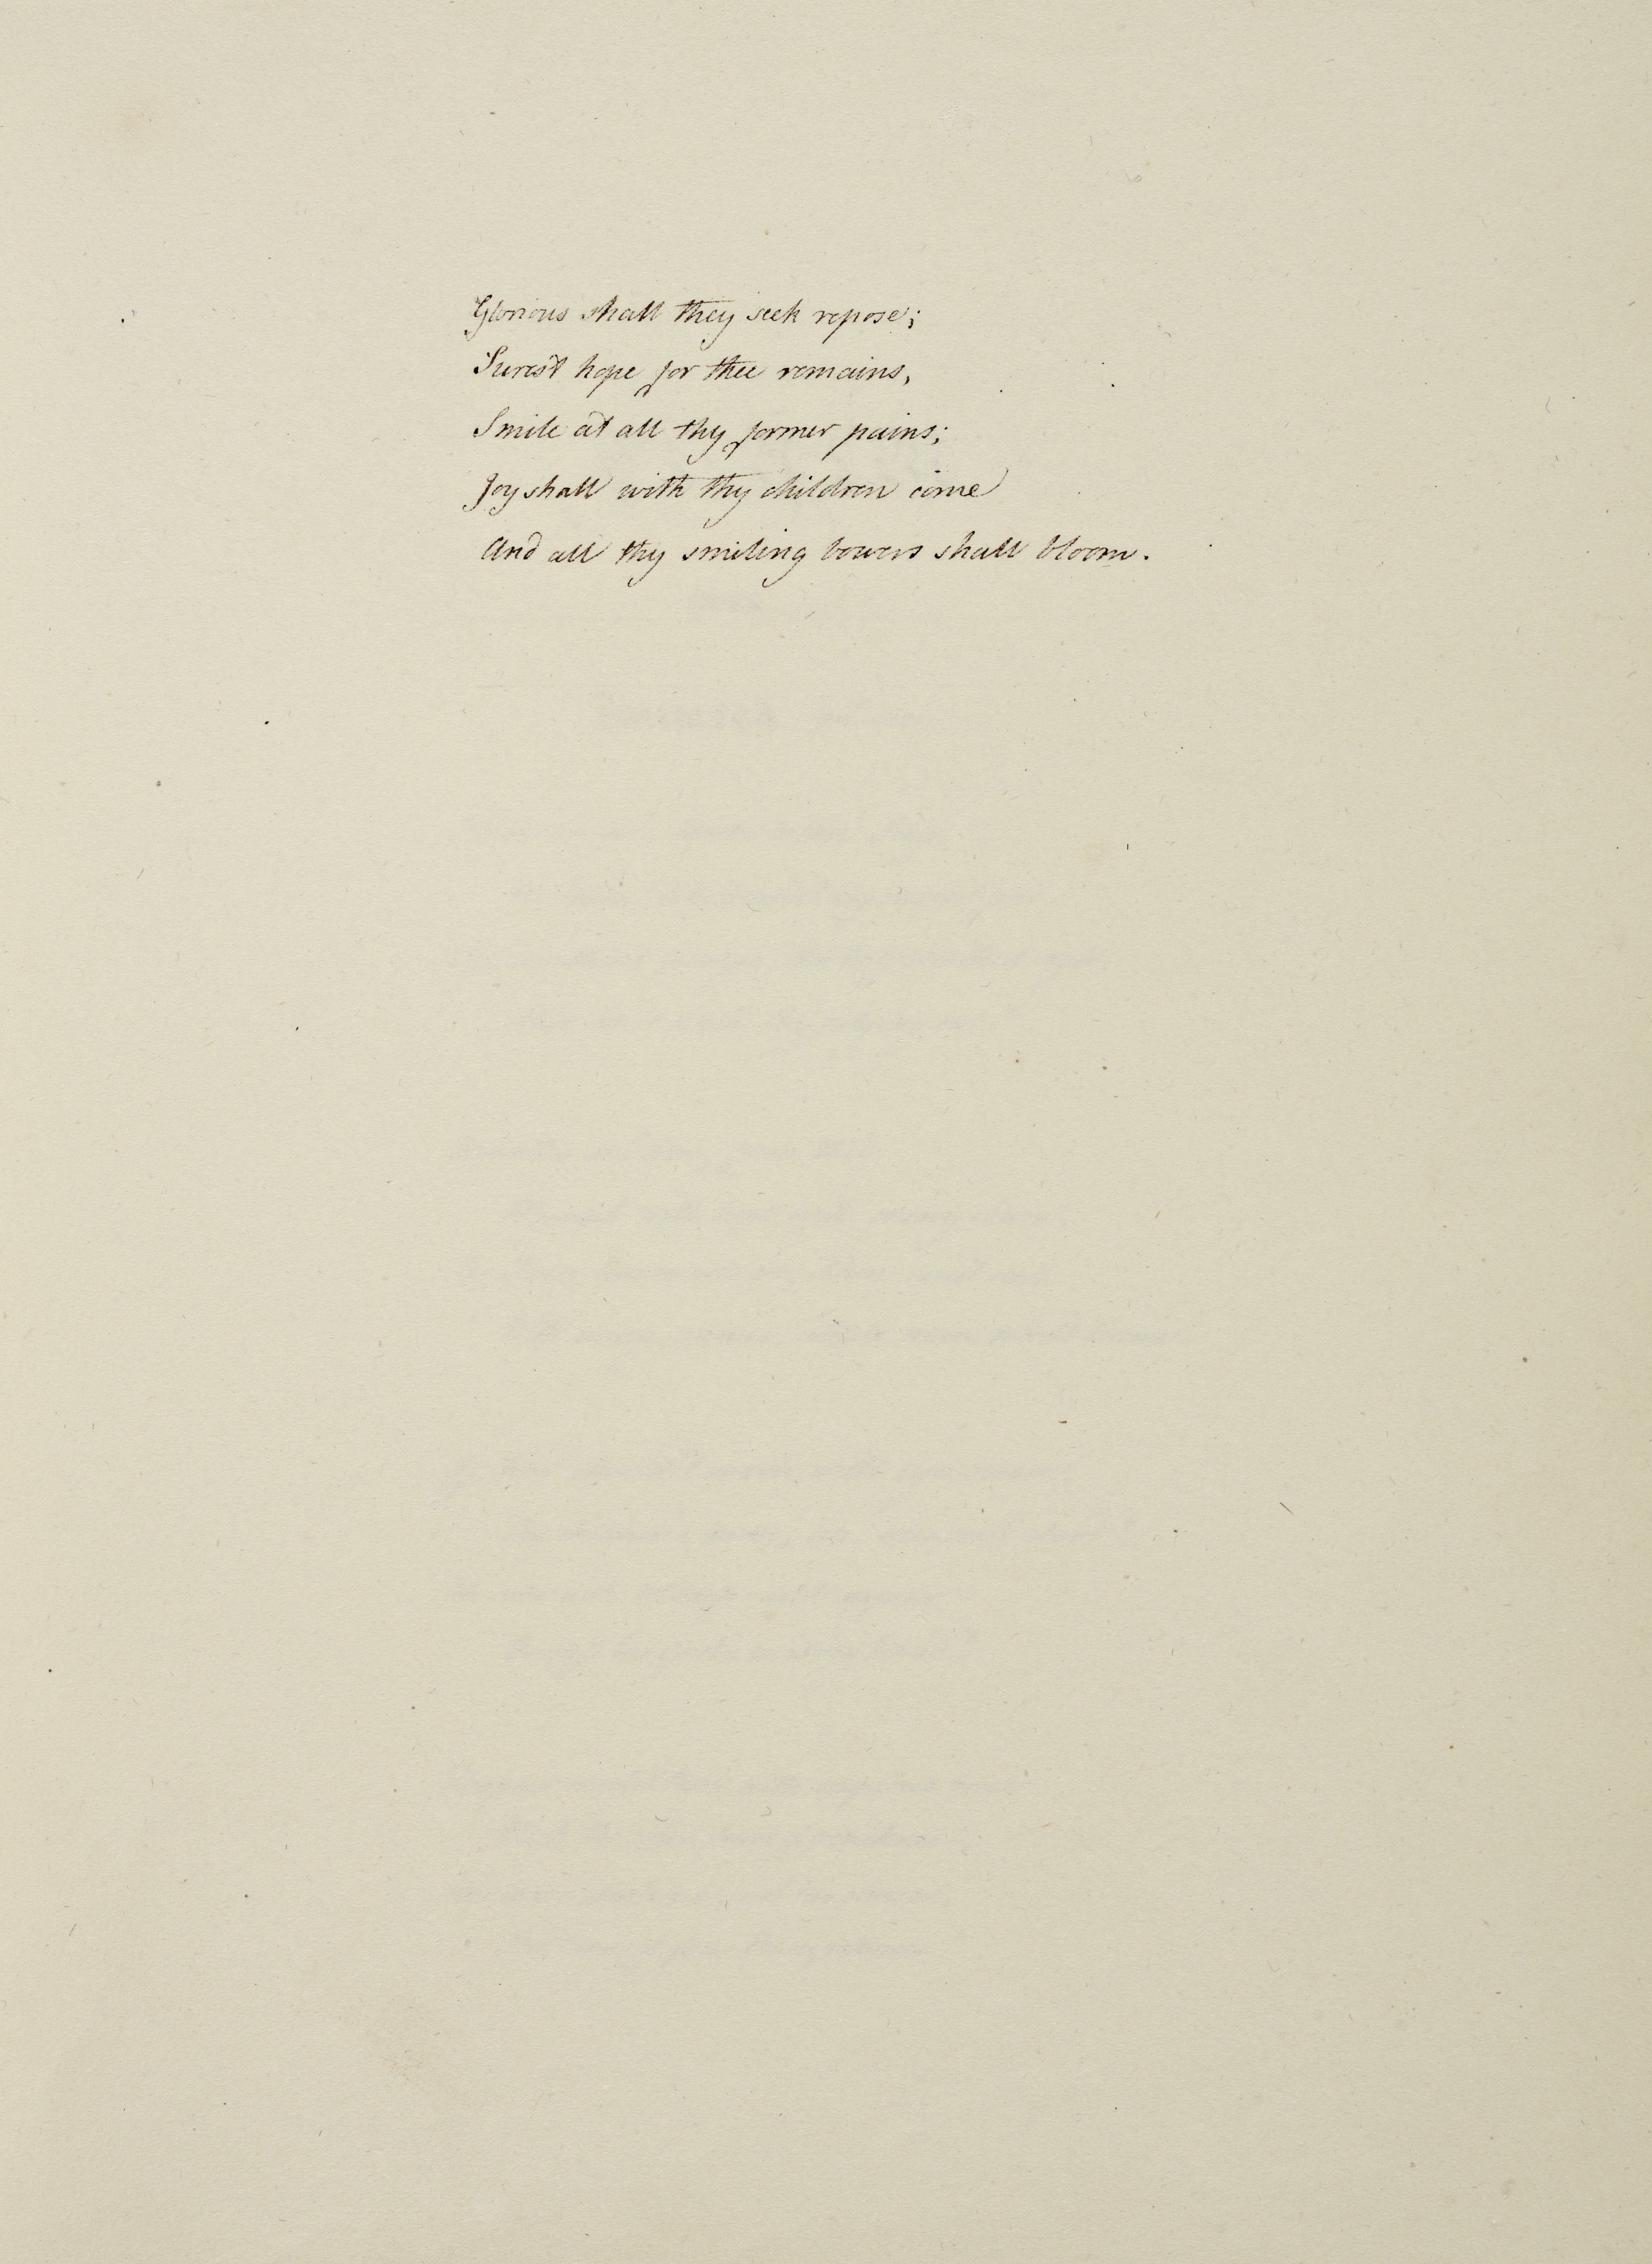 Glorious shall they seek repose;
Surest hope for thee remains,
Smile at all thy former pains;
Joy shall with thy children come
And all thy smiling bowers shall bloom.